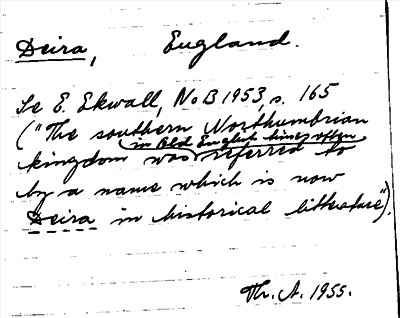 Deira, England.
Se E. Ekwall, NoB 1953, s. 165
("The southern Northumbrian
in Old English times often
kingdom was referred to
by a name which is now
Deira in historical litterature").
Th. A. 1955.